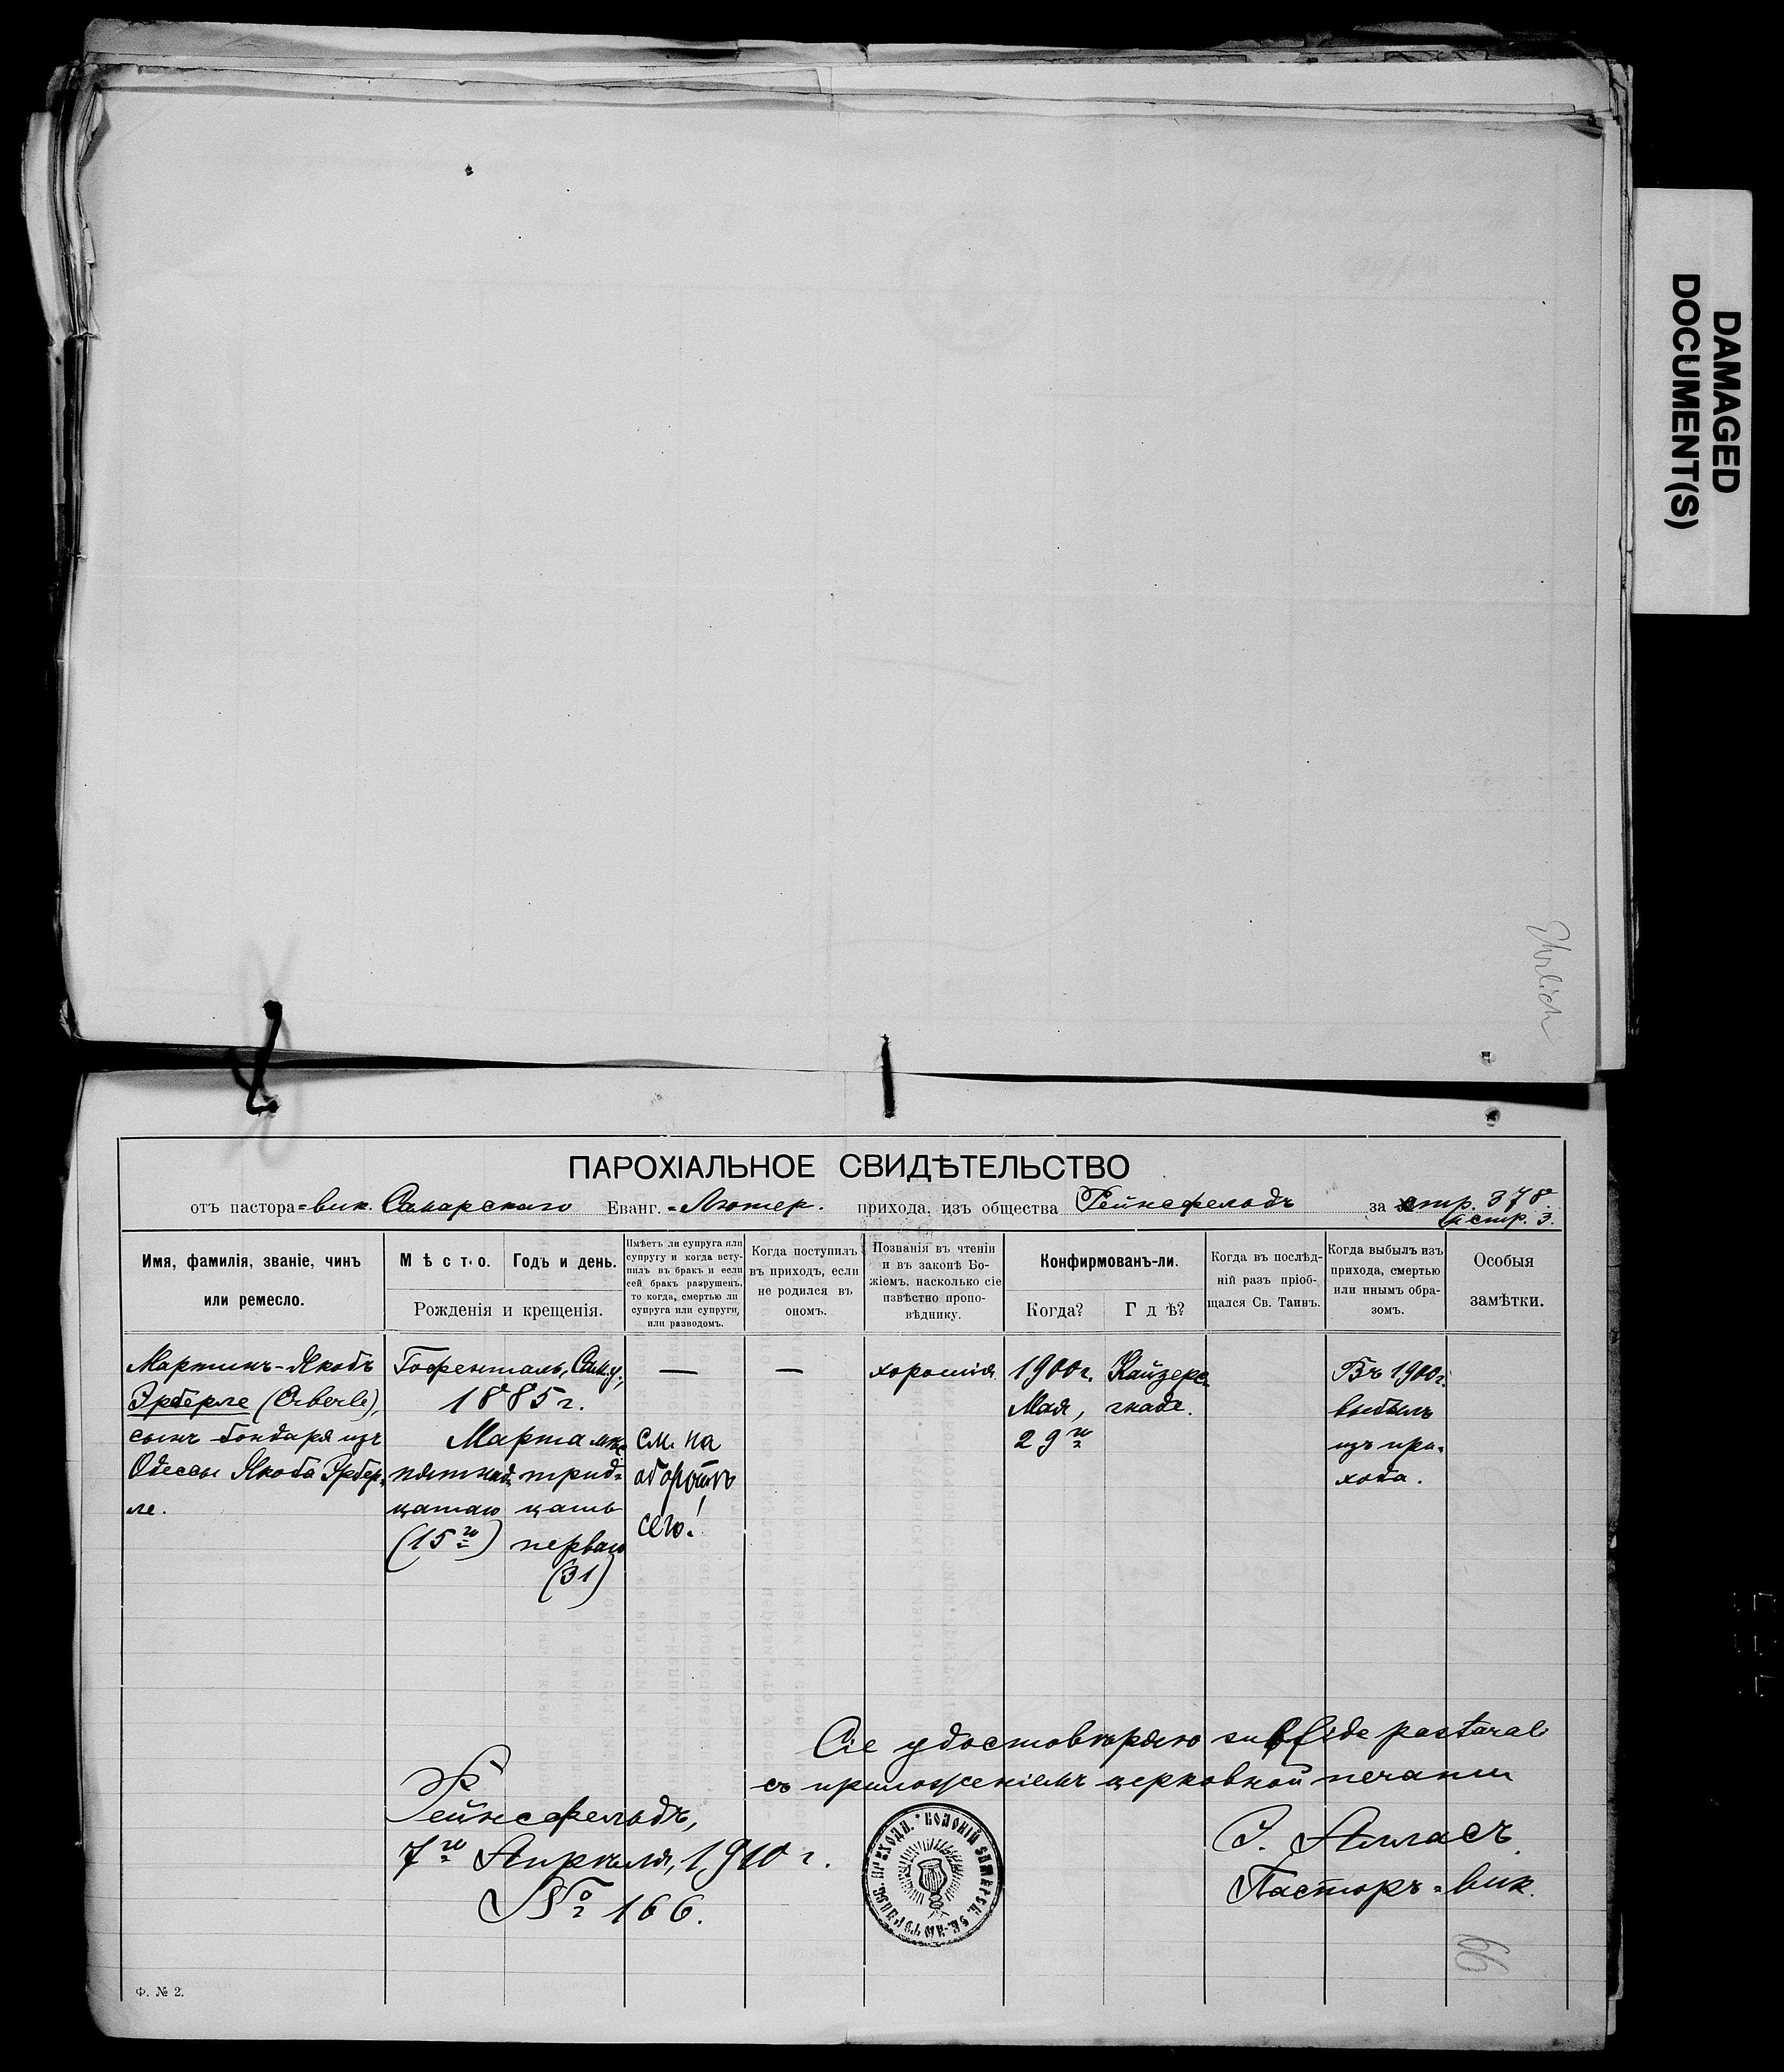 DAMAGED
DOCUMENT(S)
Ehrlich
ПАРОХІАЛЬНОЕ СВИДѢТЕЛЬСТВО
отъ пастора=вик. Самарскаго Еванг.=Лютер. прихода, изъ общества Рейнсфельдъ за стр. 378
и стр. 3.
Имя, фамилія, званіе, чинъ
или ремесло.
Мѣсто. Годъ и день.
Рожденія и крещенія.
Имѣетъ ли супруга или
супругу и когда всту-
пилъ въ бракъ и если
сей бракъ разрушенъ,
то когда, смертью ли
супруга или супруги,
или разводомъ.
Когда поступилъ
въ приходъ, если
не родился въ
ономъ.
Познанія въ чтеніи
и въ законѣ Бо-
жіемъ, насколько сіе
извѣстно пропо-
вѣднику.
Конфирмованъ-ли.
Когда? Гдѣ?
Когда въ послѣд-
ній разъ пріоб-
щался Св. Таинъ.
Когда выбылъ изъ
прихода, смертью
или инымъ обра-
зомъ.
Особыя
замѣтки.
Мартинъ-Якобъ
Эрберле
сынъ бондаря изъ
Одессы Якоба Эрбер=
ле.
Гофенталь,
1885 г.
Марта
пятнад=
цатаго
(15го)
трид=
цать
перваго
(31)
—
см. на
оборотѣ
сего!
—
хорошія
1900 г.
Мая,
29го
Кайзерс=
гнаде.
Въ 1900 г.
выбылъ
изъ при=
хода.
Сіе удостовѣряю sub fide pastorali
съ приложеніемъ церковной печати
Рейнсфельдъ,
7го Апрѣля, 1910 г.
№ 166.
Пасторъ=вик.
66
Ф. № 2.